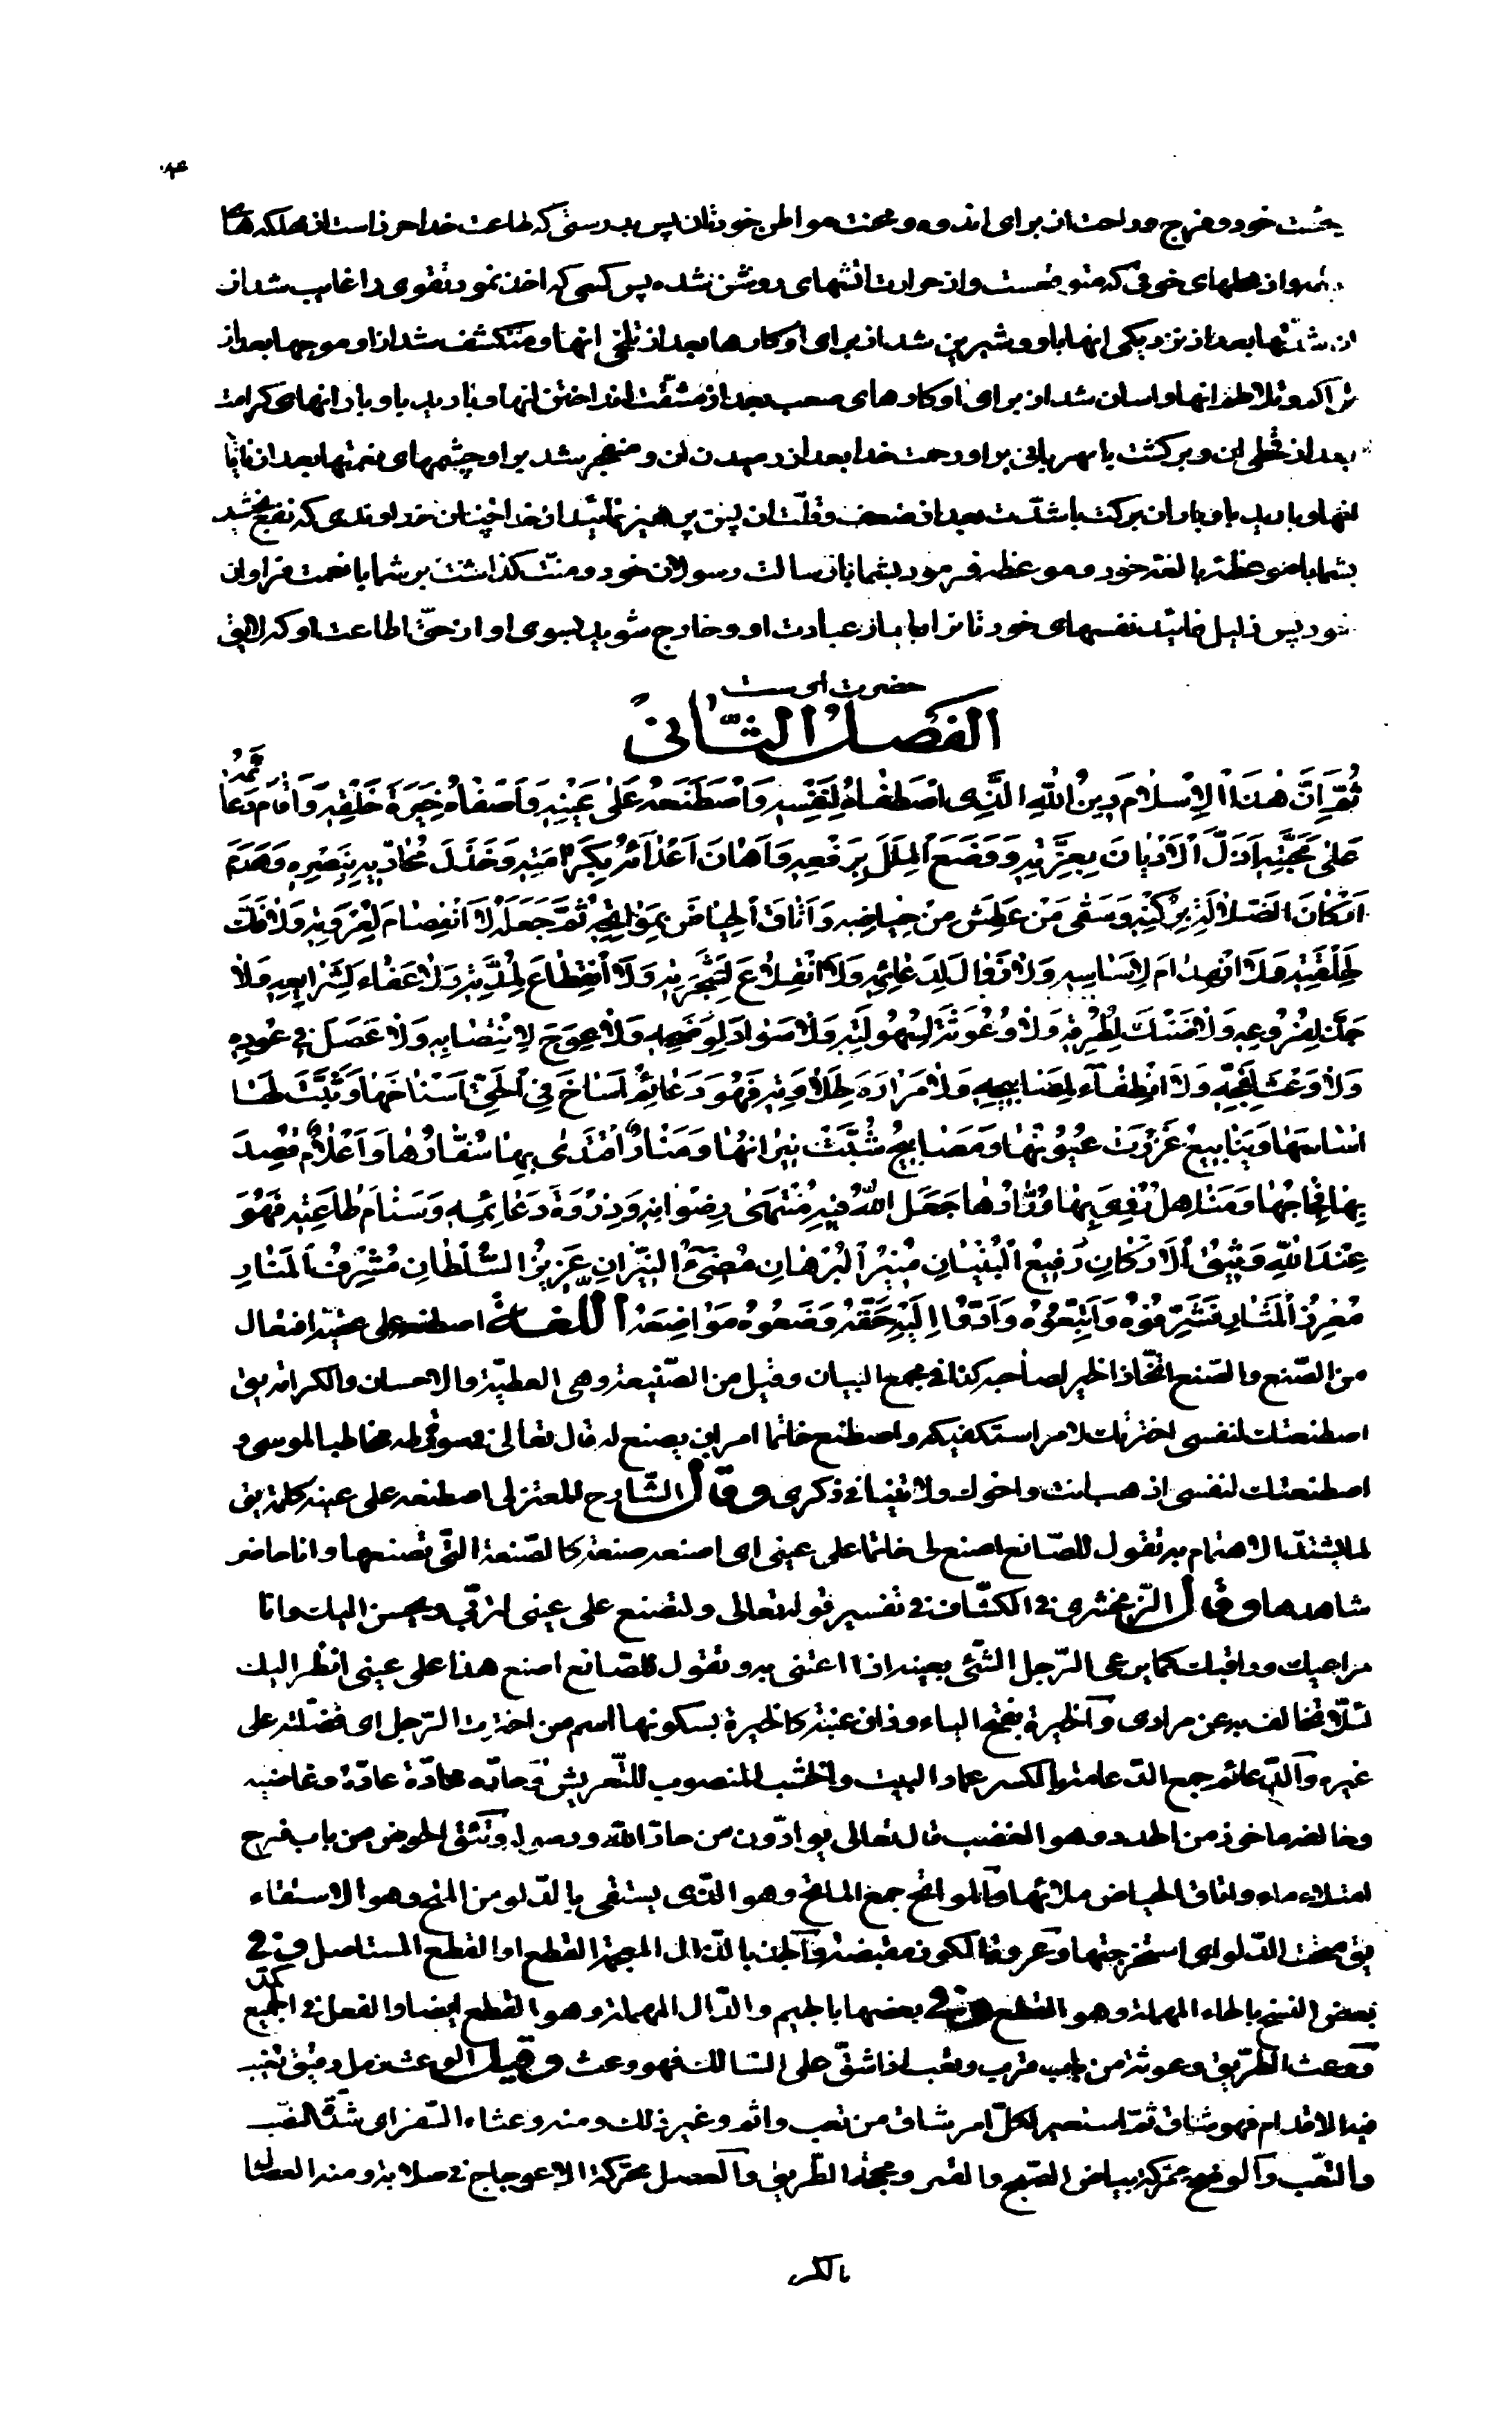 خود و فرج و راحت از برای اندوه و محنت مواطن خودتان پس بدرستی که طاعت خدا حرز است از مهلکه‌های
و از محلهای خوفی که متوقعست و از حرارت آتشهای روشن شده پس کسی که اخذ نمود تقوی را غایب شد از
او شدّتها بعد از نزدیکی انها باو و شیرین شد از برای او کارها بعد از تلخی انها و منکشف شد از او موجها بعد از
تراکم و تلاطم انها و اسان شد از برای او کارهای صعب بعد از مشقّت انداختن انها و بارید باو بارانهای کرامت
بعد از قحطی ان و برکشت با مهربانی براو رحمت خدا بعد از رمیدن ان و منفجر شد براو چشمهای نعمتها بعد از نایابی
انها و بارید باو باران برکت با شدّت بعد از ضعف و قلّت ان پس پرهیز نمائید از خدا چنان خداوندی که نفع بخشید
بشما با موعظهٔ بالغهٔ خود و موعظه فرمود بشما با رسالت رسولان خود و منّت کذاشت بر شما با نعمت فراوان
خود پس ذلیل نمائید نفسهای خودتانرا بعبادت او و خارج شوید بسوی او از حقّ اطاعت او که لایق
حضرت اوست
الفصل الثّانی
ثُمَّ إِنَّ هٰذَا الْإِسْلَامَ دِینُ اللّٰهِ الَّذِی اصْطَفَاهُ لِنَفْسِهِ وَاصْطَنَعَهُ عَلَی عَیْنِهِ وَأَصْفَاهُ خِیَرَةَ خَلْقِهِ وَأَقَامَ دَعَائِمَهُ
عَلَی مَحَبَّتِهِ أَذَلَّ الْأَدْیَانَ بِعِزَّتِهِ وَوَضَعَ الْمِلَلَ بِرَفْعِهِ وَأَهَانَ أَعْدَائَهُ بِکَرَامَتِهِ وَخَذَلَ مُحَادِّیهِ بِنَصْرِهِ وَهَدَمَ
أَرْکَانَ الضَّلَالَةِ بِرُکْنِهِ وَسَقَی مَنْ عَطِشَ مِنْ حِیَاضِهِ وَأَتْاقَ الْحِیَاضَ بِمَوَاتِحِهِ ثُمَّ جَعَلَهُ لَا انْفِصَامَ لِعُرْوَتِهِ وَلَا فَکَّ
لِحَلْقَتِهِ وَلَا انْهِدَامَ لِأَسَاسِهِ وَلَا زَوَالَ لِدَعَائِمِهِ وَلَا انْقِلَاعَ لِشَجَرَتِهِ وَلَا انْقِطَاعَ لِمُدَّتِهِ وَلَا عَفَاءَ لِشَرَایِعِهِ وَلَا
جَذَّ لِفُرُوعِهِ وَلَا ضَنْکَ لِطُرُقِهِ وَلَا وُعُوثَةَ لِسُهُولَتِهِ وَلَا سَوَادَ لِوَضَحِهِ وَلَا عِوَجَ لِانْتِصَابِهِ وَلَا عَصَلَ فِی عُودِهِ
وَلَا وَعْثَ لِفَجِّهِ وَلَا انْطِفَآءَ لِمَصَابِیحِهِ وَلَا مَرَارَةَ لِحَلَاوَتِهِ فَهُوَ دَعَائِمُ أَسَاخَ فِی الْحَقِّ أَسْنَاخَهَا وَثَبَّتَ لَهَا
أَسَاسَهَا وَیَنَابِیعُ غَزُرَتْ عُیُونُهَا وَمَصَابِیحُ شُبَّتْ نِیرَانُهَا وَمَنَارٌ اقْتَدَی بِهَا سُفَّارُهَا وَأَعْلَامٌ قُصِدَ
بِهَا فِجَاجُهَا وَمَنَاهِلُ رَوِیَ بِهَا وُرَّادُهَا جَعَلَ اللّٰهُ فِیهِ مُنْتَهَی رِضْوَانِهِ وَذِرْوَةَ دَعَائِمِهِ وَسَنَامَ طَاعَتِهِ فَهُوَ
عِنْدَ اللّٰهِ وَثِیقُ الْأَرْکَانِ رَفِیعُ الْبُنْیَانِ مُنِیرُ الْبُرْهَانِ مُضِیءُ النِّیرَانِ عَزِیزُ السُّلْطَانِ مُشْرِفُ الْمَنَارِ
مُعْوِزُ الْمَثَارِ فَشَرِّفُوهُ وَاتَّبِعُوهُ وَأَدُّوا إِلَیْهِ حَقَّهُ وَضَعُوهُ مَوَاضِعَهُ اللّغـة اصطنعه علی عینه افتعال
من الصّنع والصّنع اتّخاذ الخیر لصاحبه کذا فی مجمع البیان وقیل من الصّنیعة وهی العطیّة والاحسان والکرامة یق
اصطنعتک لنفسی اخترتک لامر استکفیکه واصطنع خاتما امر ان یصنع له قال تعالی فی سورة طه مخاطبا لموسی و
اصطنعتک لنفسی اذهب انت واخوک ولا تنیا فی ذکری وقال الشّارح المعتزلی اصطنعه علی عینه کلمة یق
لما یشتدّ الاهتمام به تقول للصّانع اصنع لی خاتما علی عینی ای اصنعه صنعة کالصّنعة الّتی تصنعها وانا حاضر
شاهدها وقال الزّمخشری فی الکشّاف فی تفسیر قوله تعالی ولتصنع علی عینی لتربّی ویحسن الیک وانا
مراعیک وراقبک کما یرعی الرّجل الشّیء بعینه اذا اعتنی به وتقول للصّانع اصنع هذا علی عینی انظر الیک
لئلّا تخالف به عن مرادی والخیرة بفتح الیاء وزان عنبة کالخیرة بسکونها اسم من اخترت الرّجل ای فضّلته علی
غیره والدّعائم جمع الدّعامة بالکسر عماد البیت والخشب المنصوب للتّعریش وحادّه محادّة عادّة وغاضبه
وخالفه ماخوذ من الحدد وهو الغضب قال تعالی یوادّون من حادّ اللّه ورسوله وتئق الحوض من باب فرح
امتلاء ماء واتاق الحیاض ملائها والمواتح جمع الماتح وهو الّذی یستقی بالدّلو من المتح وهو الاستقاء
یق متحت الدّلو ای استخرجتها وعروة الکوز مقبضه والجذ بالذّال المعجمة القطع او القطع المستاصل وفی
بعض النسخ بالحاء المهملة وهو القطع وفی بعضها بالجیم والدّال المهملة وهو القطع ایضا والفعل فی الجمیع کمدّ
ووعث الطّریق وعوثة من باب قرب وتعب اذا شقّ علی السّالک فهو وعث وقیل الوعث رمل دقیق تغیب
فیه الاقدام فهو شاقّ ثمّ استعیر لکلّ امر شاق من تعب واثم وغیر ذلک ومنه وعثاء السّفر ای شدّة النّصب
والتّعب والوضح محرّکة بیاض الصّبح والقمر ومحجّة الطّریق والعصل محرّکة الاعوجاج فی صلابة ومنه العصال
بالکسر